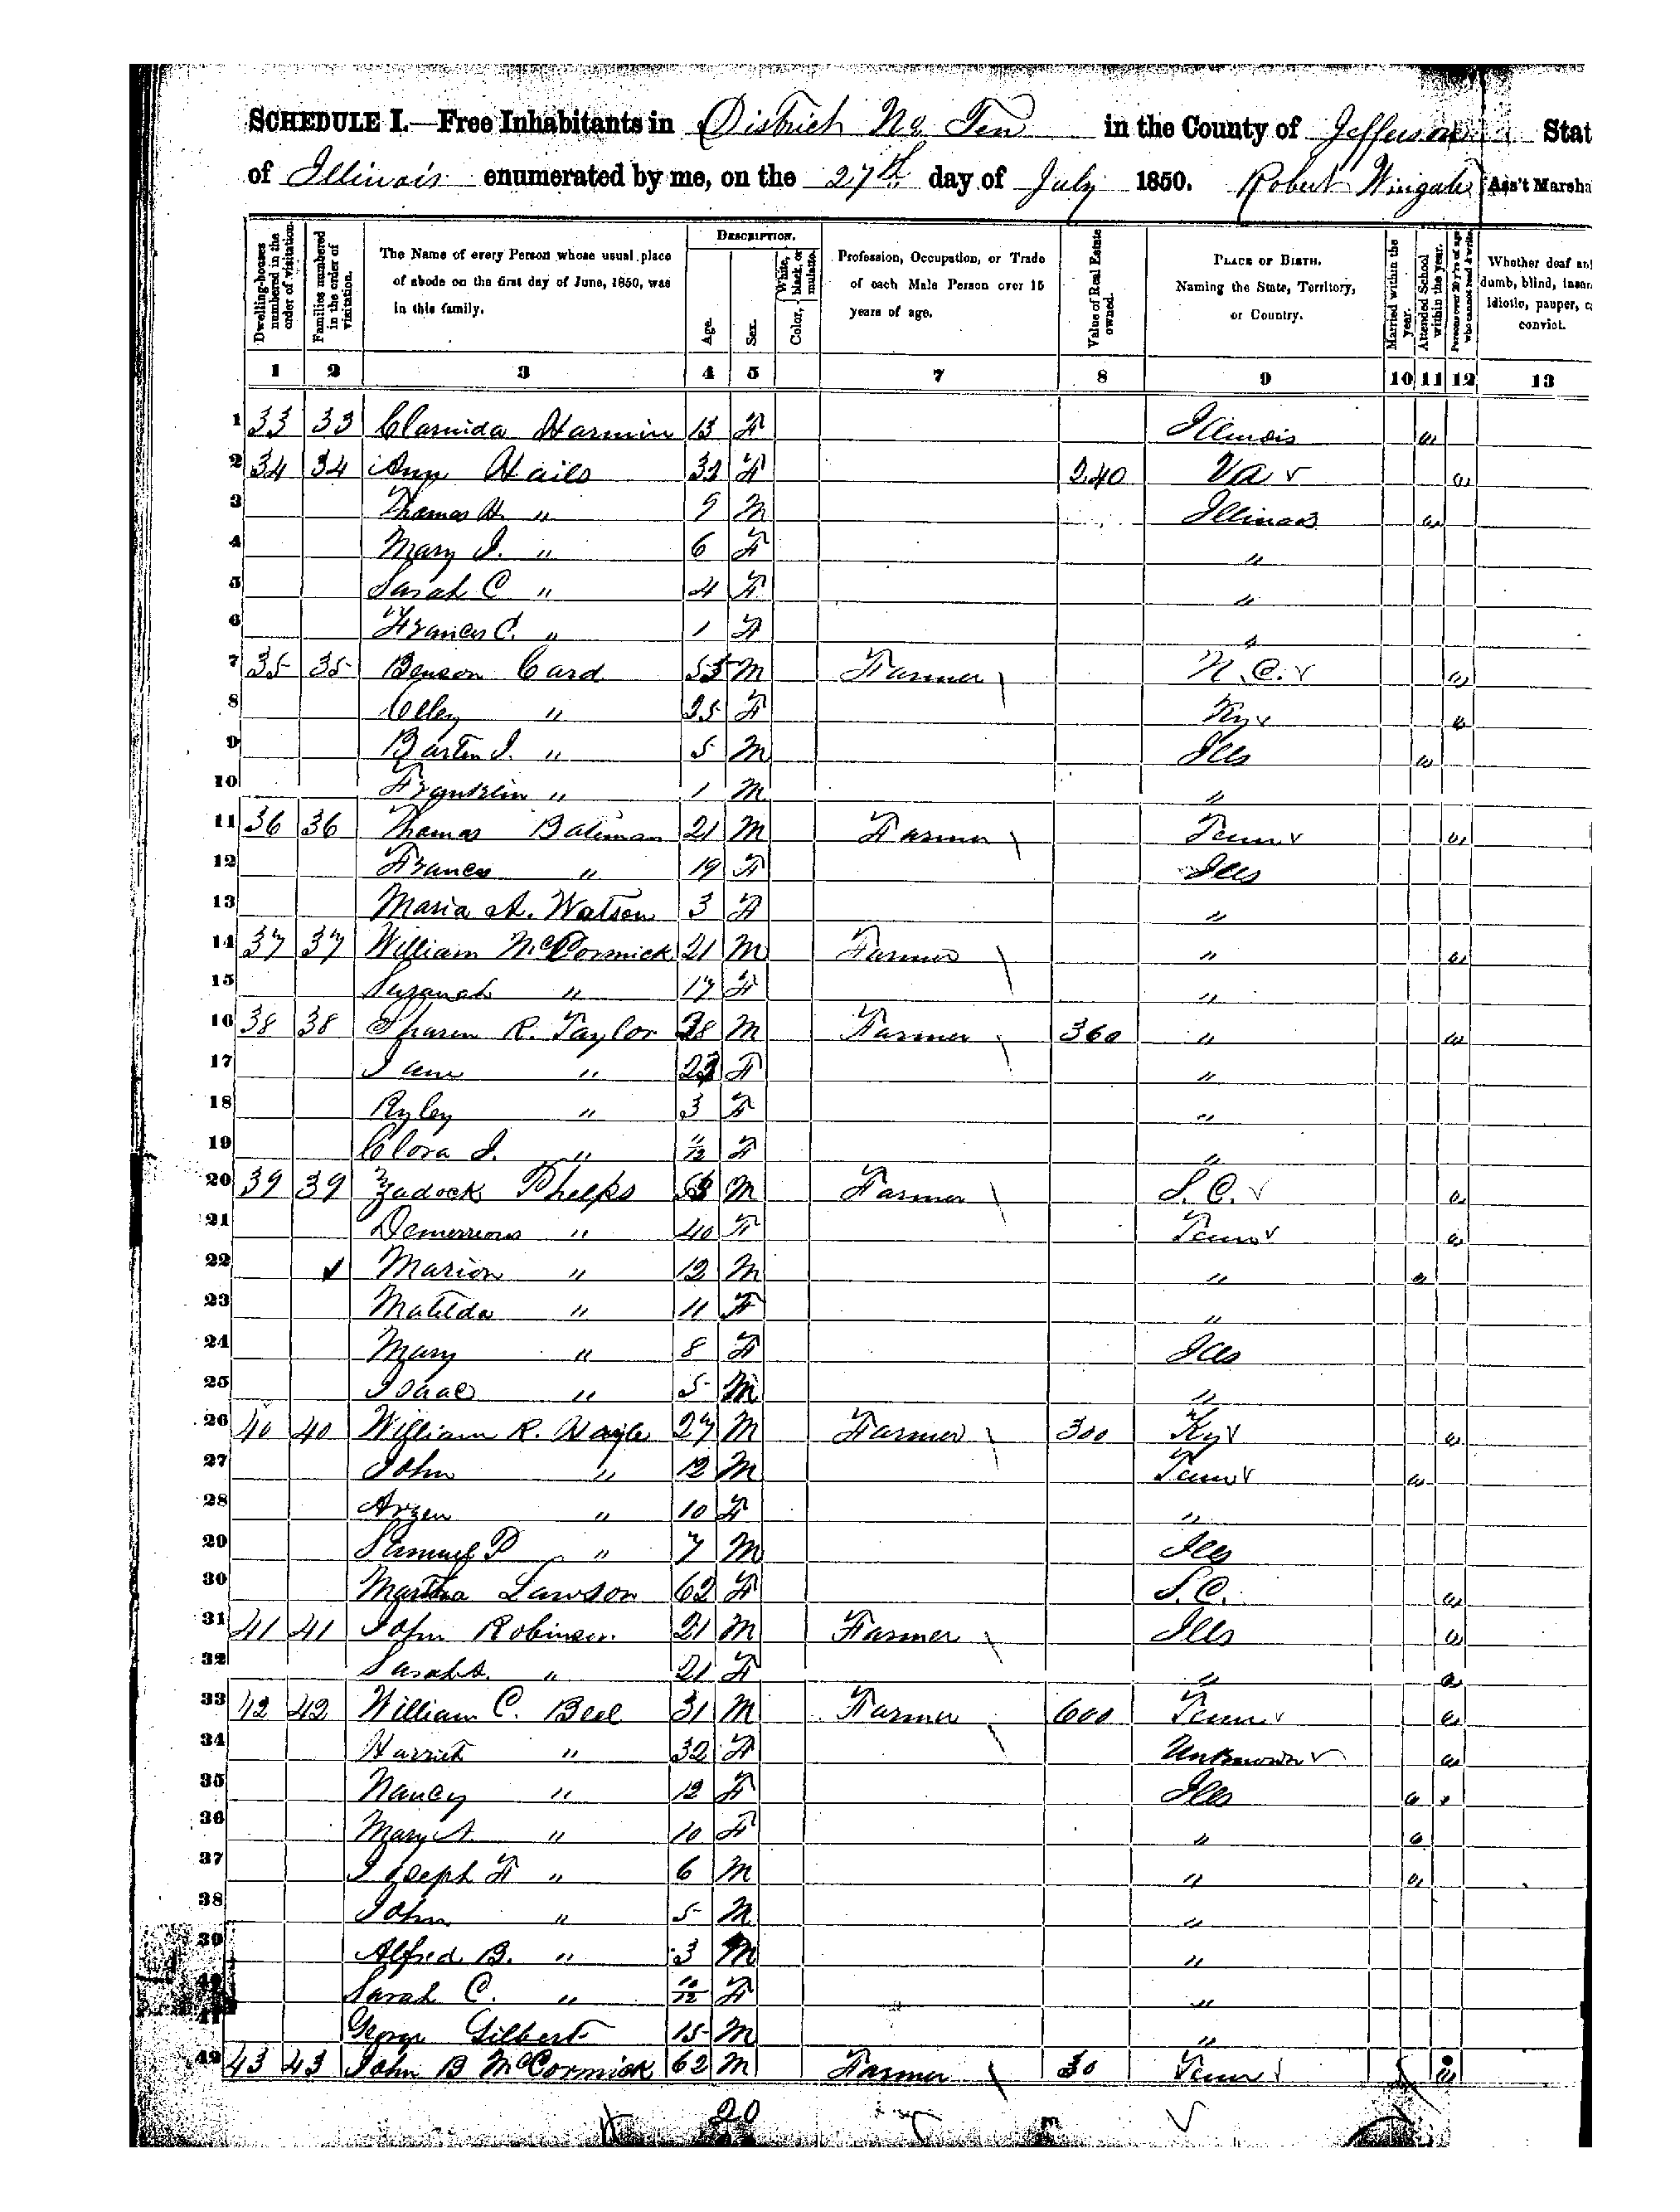 SCHEDULE I.—Free Inhabitants in District No. Ten in the County of Jefferson Stat
of Illinois enumerated by me, on the 27th day of July 1850. Robert Wingate Ass't Marsha
Dwelling-houses numbered in the order of visitation.
Families numbered in the order of visitation.
The Name of every Person whose usual place of abode on the first day of June, 1850, was in this family.
DESCRIPTION.
Age.
Sex.
Color, White, black, or mulatto.
Profession, Occupation, or Trade of each Male Person over 15 years of age.
Value of Real Estate owned.
PLACE OF BIRTH. Naming the State, Territory, or Country.
Married within the year.
Attended School within the year.
Persons over 20 y'rs of age who cannot read & write.
Whether deaf and dumb, blind, insan idiotic, pauper, c convict.
1 2 3 4 5 7 8 9 10 11 12 13
1 33 33 Harmin 13 F Illinois
2 34 34 Ann Hails 32 F 240 Va
3 Thomas H. " 9 M Illinois
4 Mary J. " 6 F "
5 Sarah C " 4 F "
6 Frances C. " 1 F "
7 35 35 Benson Card 55 M Farmer N.C.
8 " 25 F Ky
9 Barten J. " 5 M Ills
10 Franklin " 1 M "
11 36 36 Thomas Bateman 21 M Farmer Tenn
12 Frances " 19 F Ills
13 Maria A. Watson 3 F "
14 37 37 William McCormick 21 M Farmer "
15 Susanah " 17 F "
16 38 38 R. Taylor 28 M Farmer 360 "
17 Jane " F "
18 Ryley " 3 F "
19 Clora J. " 11/12 F "
20 39 39 Zadock Phelps M Farmer S.C.
21 " 40 F Tenn
22 Marion " 12 M "
23 Matilda " 11 F "
24 Mary " 8 F Ills
25 Isaac " 5 M "
26 40 40 William R. Hayle 27 M Farmer 300 Ky
27 John " 12 M Tenn
28 Arzen " 10 F "
29 Samuel P " 7 M Ills
30 Martha Lawson 62 F S.C.
31 41 41 John Robinson 21 M Farmer Ills
32 Sarah A. " 21 F "
33 42 42 William C. Beel 31 M Farmer 600 Tenn
34 Harriet " 32 F Unknown
35 Nancy " 12 F Ills
36 Mary A. " 10 F "
37 Joseph F " 6 M "
38 John " 5 M "
39 Alfred B. " 3 M "
40 Sarah C. " 10/12 F "
41 George Gilbert 15 M "
42 43 43 John B McCormick 62 M Farmer 30 Tenn
20